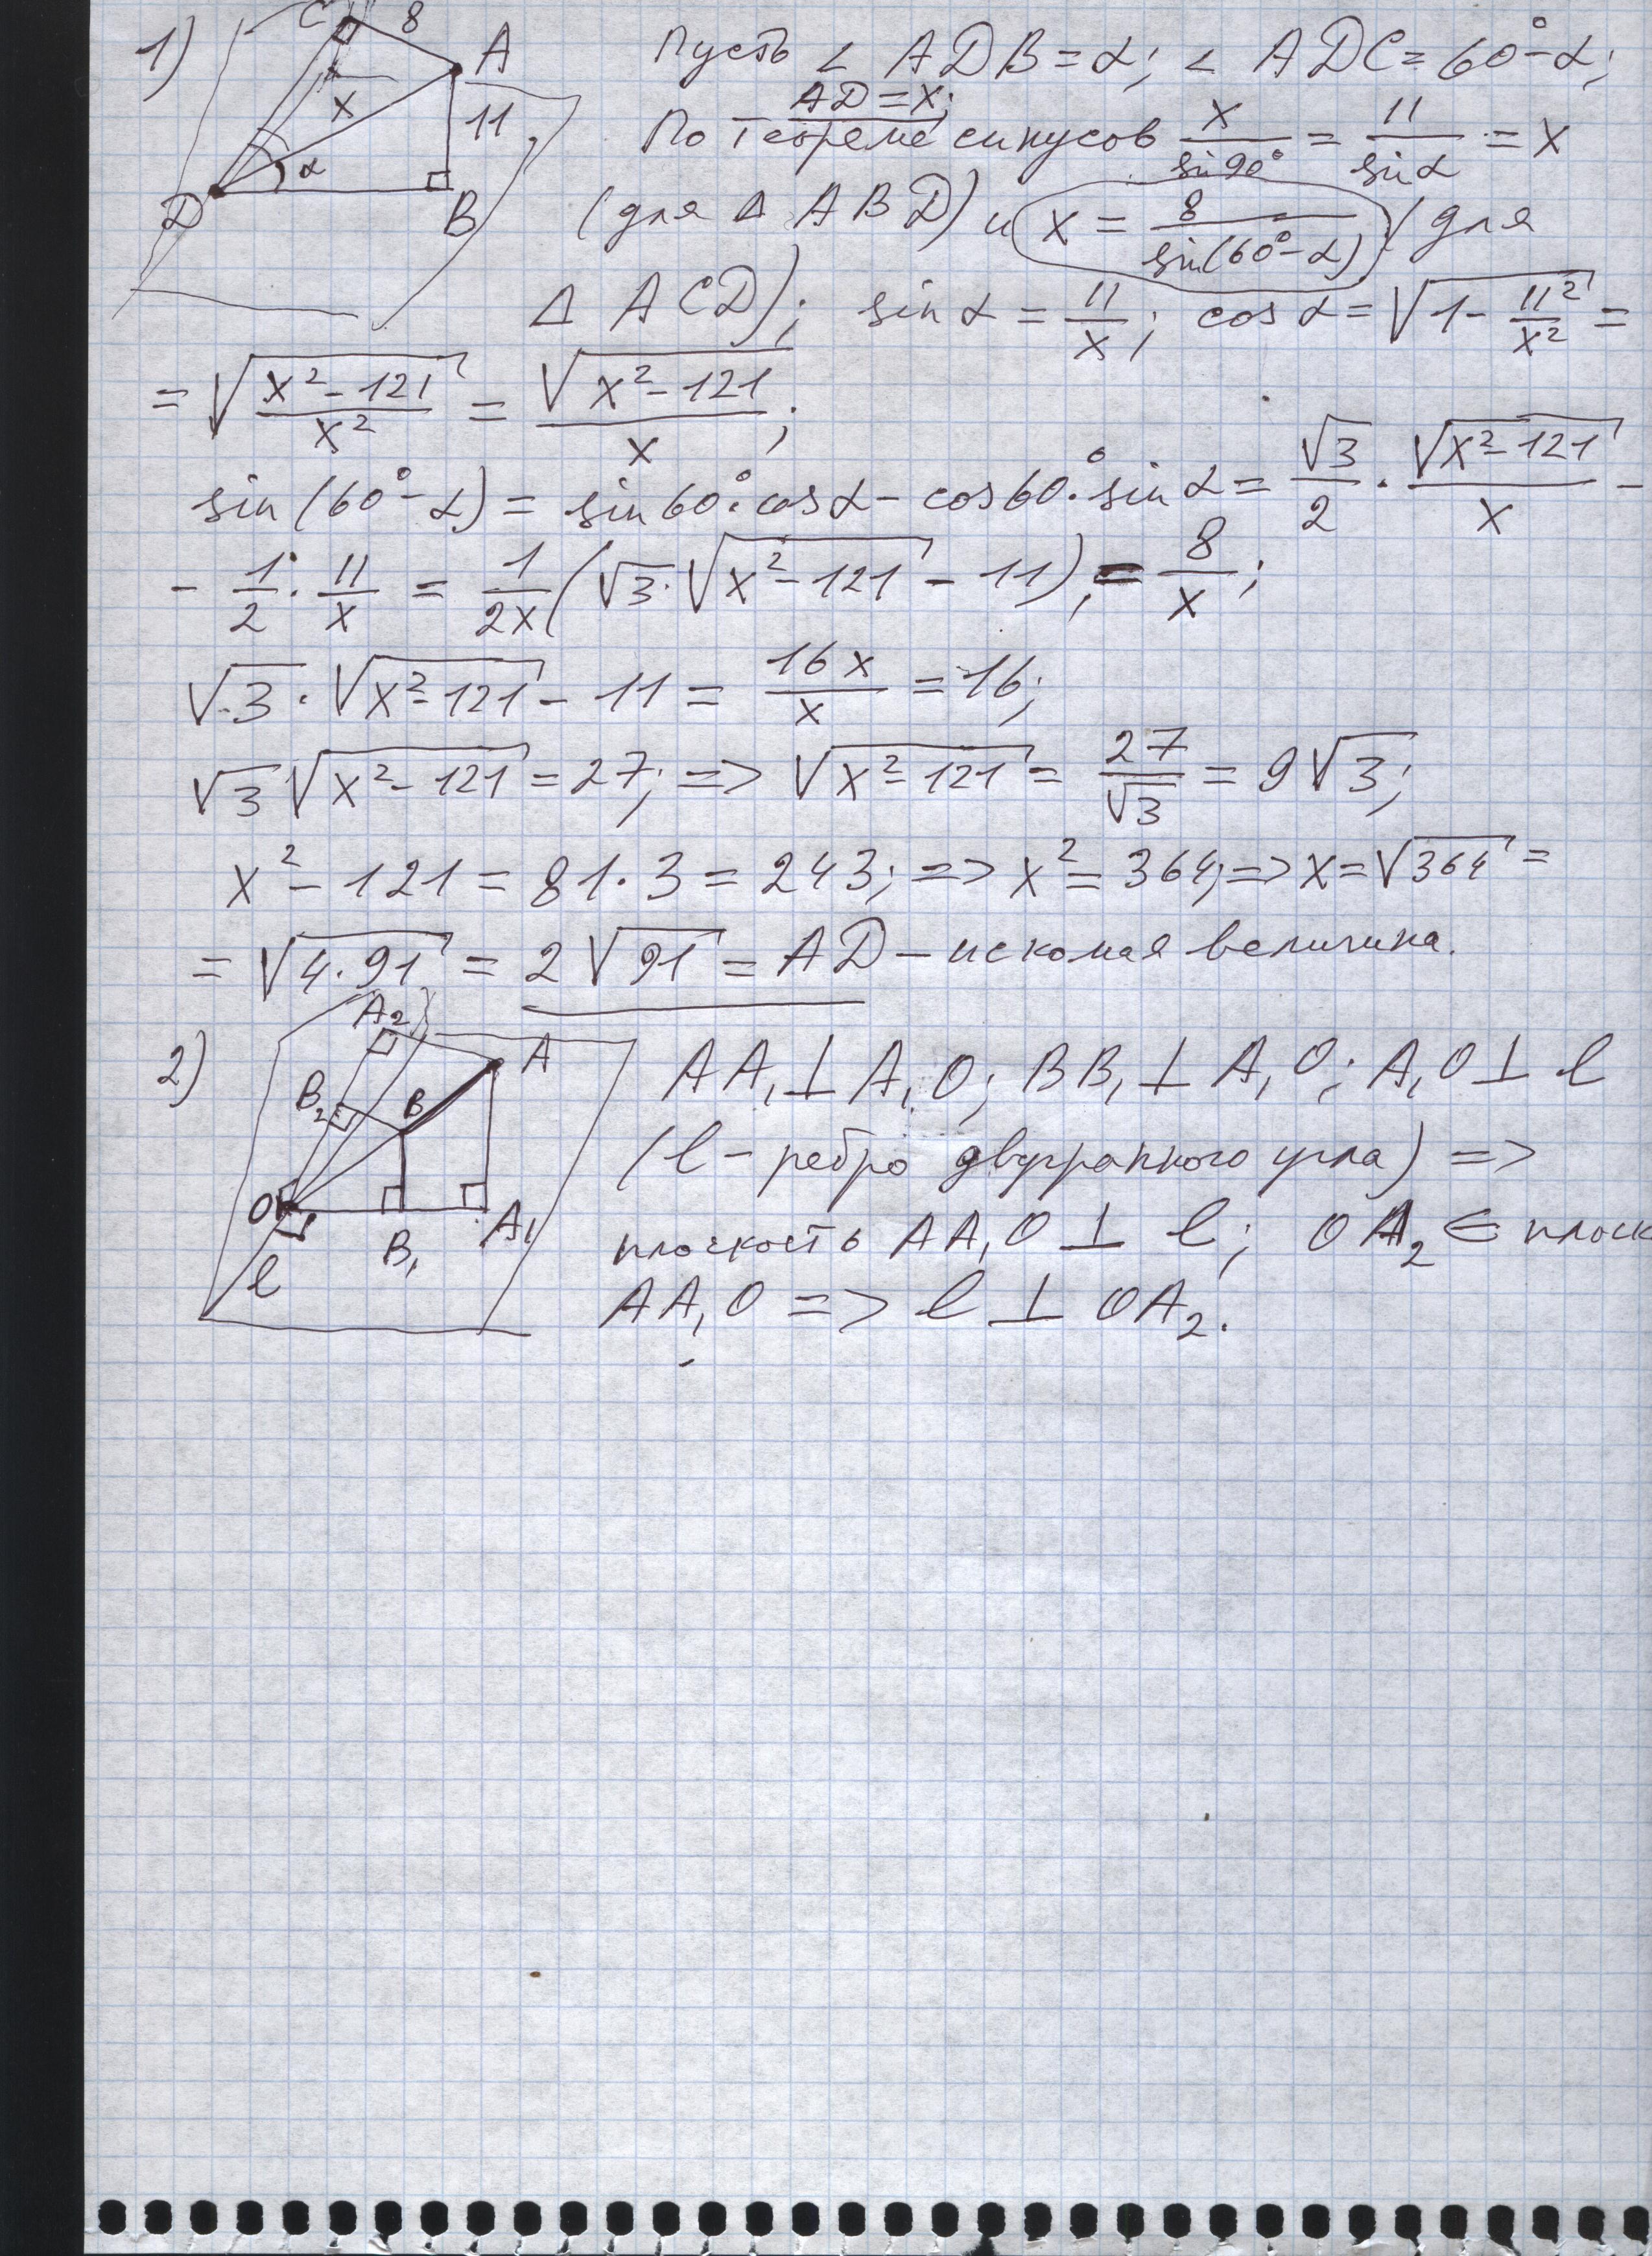 1) C 8 A X 11 α D B
Пусть ∠ ADB = α; ∠ ADC = 60° - α;
AD = x;
По теореме синусов x/sin90° = 11/sinα = x
(для Δ ABD) и x = 8/sin(60° - α) (для
Δ ACD); sin α = 11/x; cos α = √(1 - 11²/x²) =
= √((x² - 121)/x²) = √(x² - 121)/x;
sin(60° - α) = sin60°·cosα - cos60°·sinα = √3/2 · √(x² - 121)/x -
- 1/2 · 11/x = 1/2x (√3·√(x² - 121) - 11); = 8/x;
√3 · √(x² - 121) - 11 = 16x/x = 16;
√3 √(x² - 121) = 27; => √(x² - 121) = 27/√3 = 9√3;
x² - 121 = 81·3 = 243; => x² = 364; => x = √364 =
= √(4·91) = 2√91 = AD - искомая величина.
2) A₂ A B₂ B O A₁ B₁ l
AA₁ ⊥ A₁O; BB₁ ⊥ A₁O; A₁O ⊥ l
(l - ребро двугранного угла) =>
плоскость AA₁O ⊥ l; OA₂ ∈ плоск
AA₁O => l ⊥ OA₂.